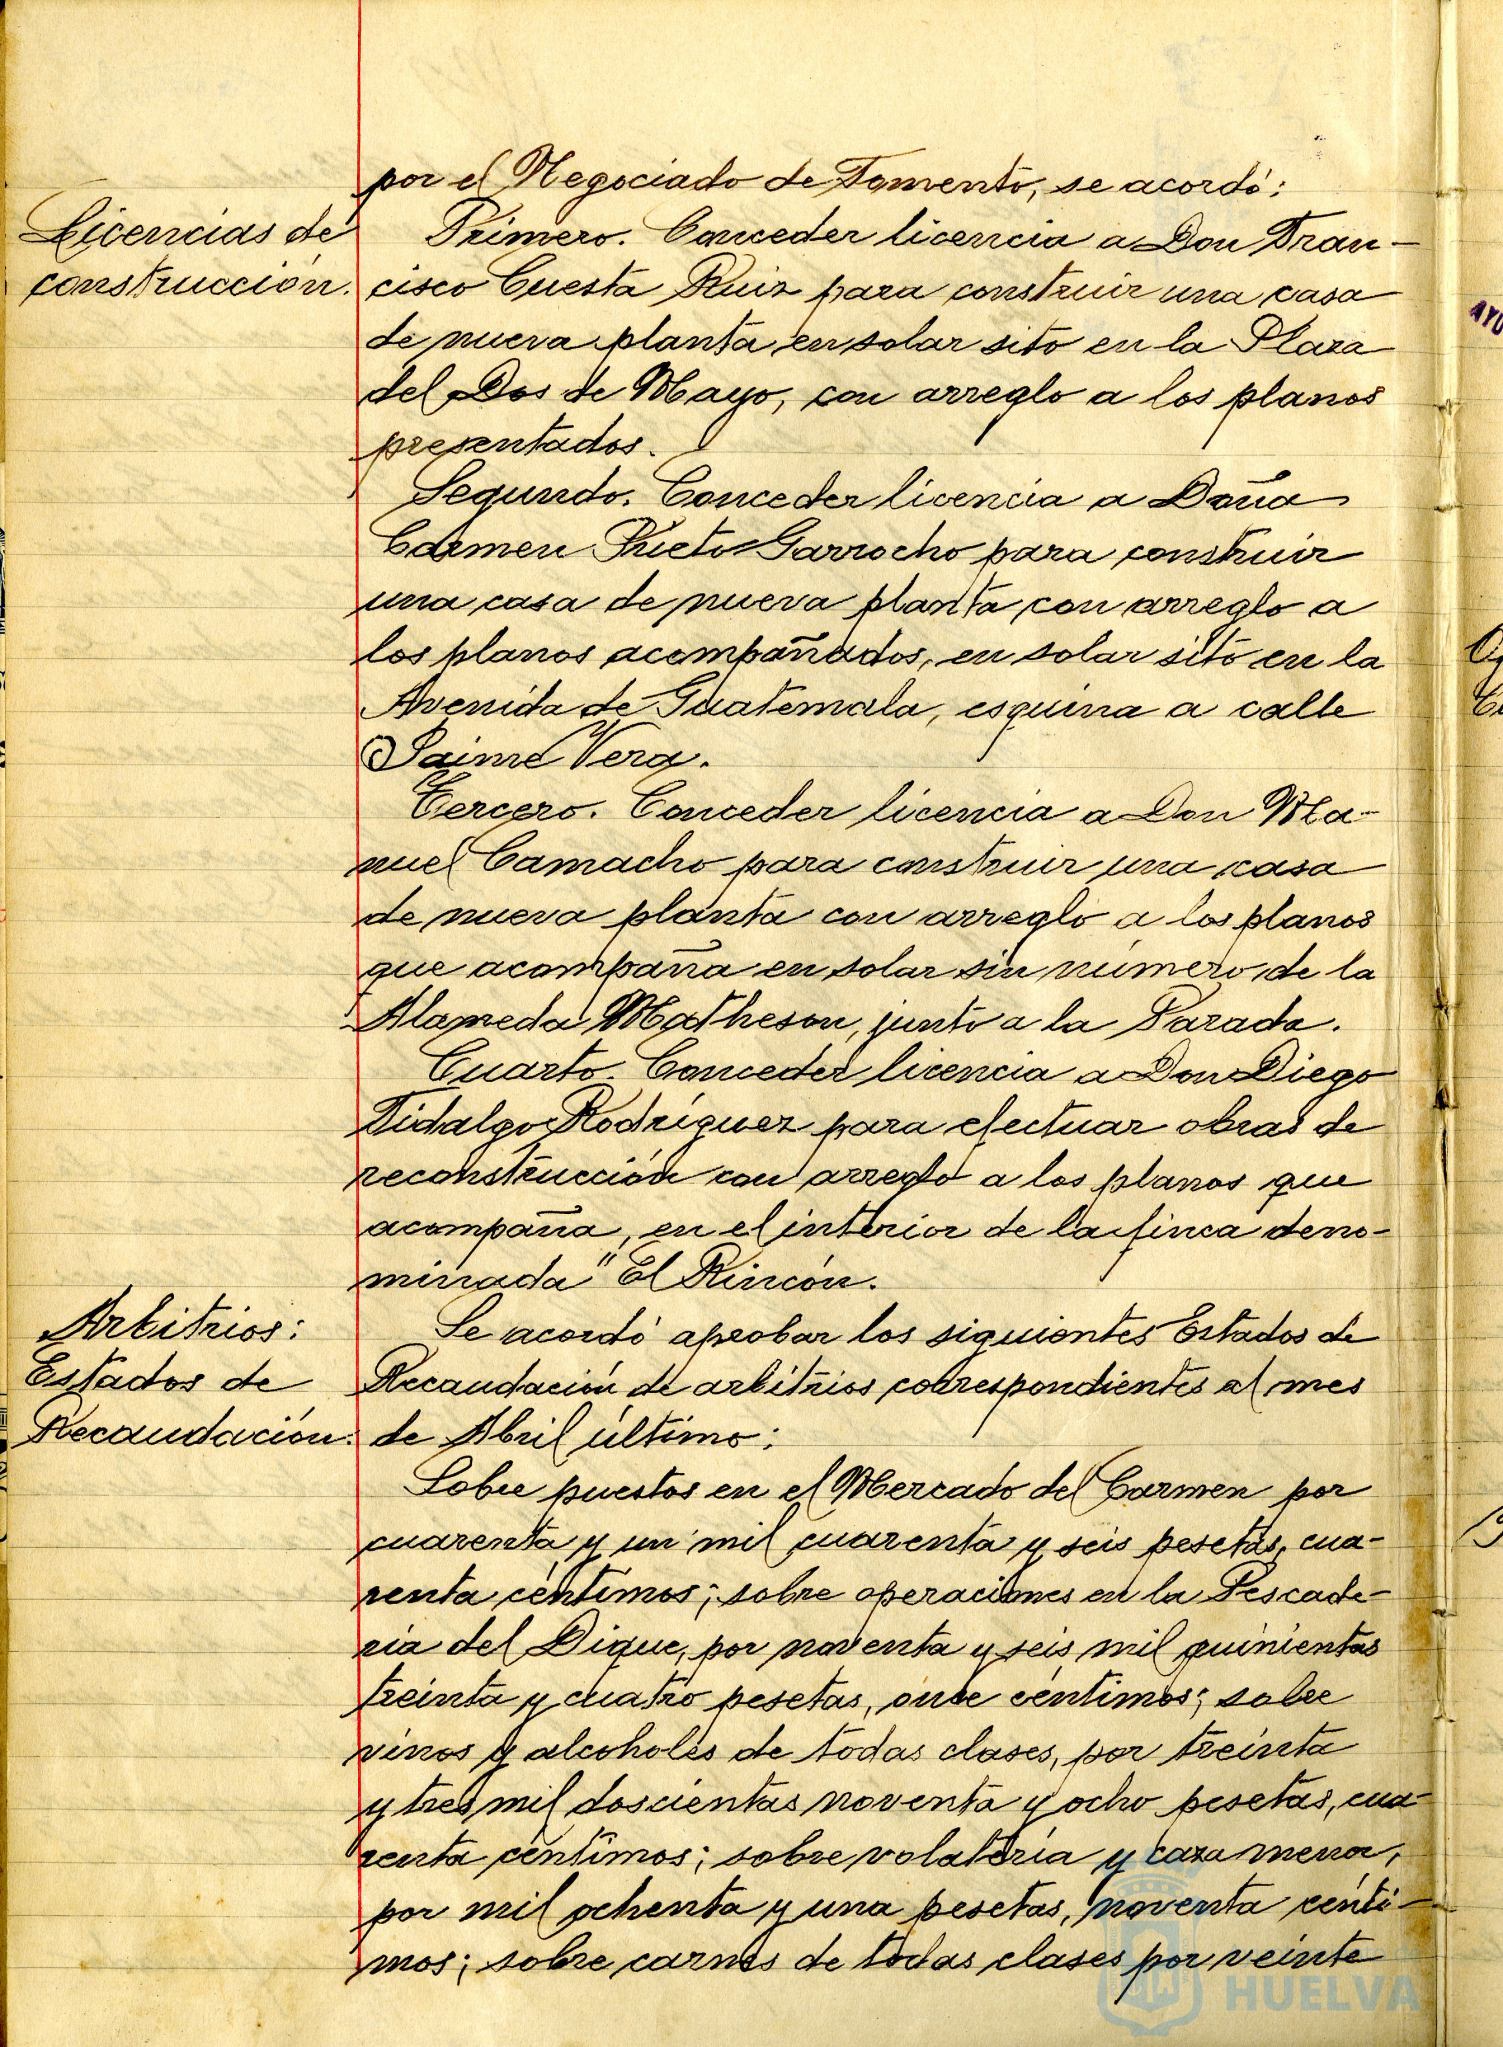 por el Negociado de Fomento, se acordó:
Licencias de
construcción.
Primero. Conceder licencia a Don Fran-
cisco Cuesta Ruiz para construir una casa
de nueva planta en solar sito en la Plaza
del Dos de Mayo, con arreglo a los planos
presentados.
Segundo. Conceder licencia a Doña
Carmen Prieto Garrocho para construir
una casa de nueva planta con arreglo a
los planos acompañados, en solar sito en la
Avenida de Guatemala, esquina a calle
Jaime Vera.
Tercero. Conceder licencia a Don Ma-
nuel Camacho para construir una casa
de nueva planta con arreglo a los planos
que acompaña en solar sin número de la
Alameda Matheson, junto a la Parada.
Cuarto. Conceder licencia a Don Diego
Fidalgo Rodríguez para efectuar obras de
reconstrucción con arreglo a los planos que
acompaña, en el interior de la finca deno-
minada "El Rincón.
Arbitrios:
Estados de
Recaudación.
Se acordó aprobar los siguientes Estados de
Recaudación de arbitrios correspondientes al mes
de Abril último:
Sobre puestos en el Mercado del Carmen por
cuarenta y un mil cuarenta y seis pesetas, cua-
renta céntimos; sobre operaciones en la Pescade-
ría del Dique, por noventa y seis mil quinientas
treinta y cuatro pesetas, once céntimos; sobre
vinos y alcoholes de todas clases, por treinta
y tres mil doscientas noventa y ocho pesetas, cua-
renta céntimos; sobre volatería y caza menor,
por mil ochenta y una pesetas, noventa cénti-
mos; sobre carnes de todas clases por veinte
HUELVA